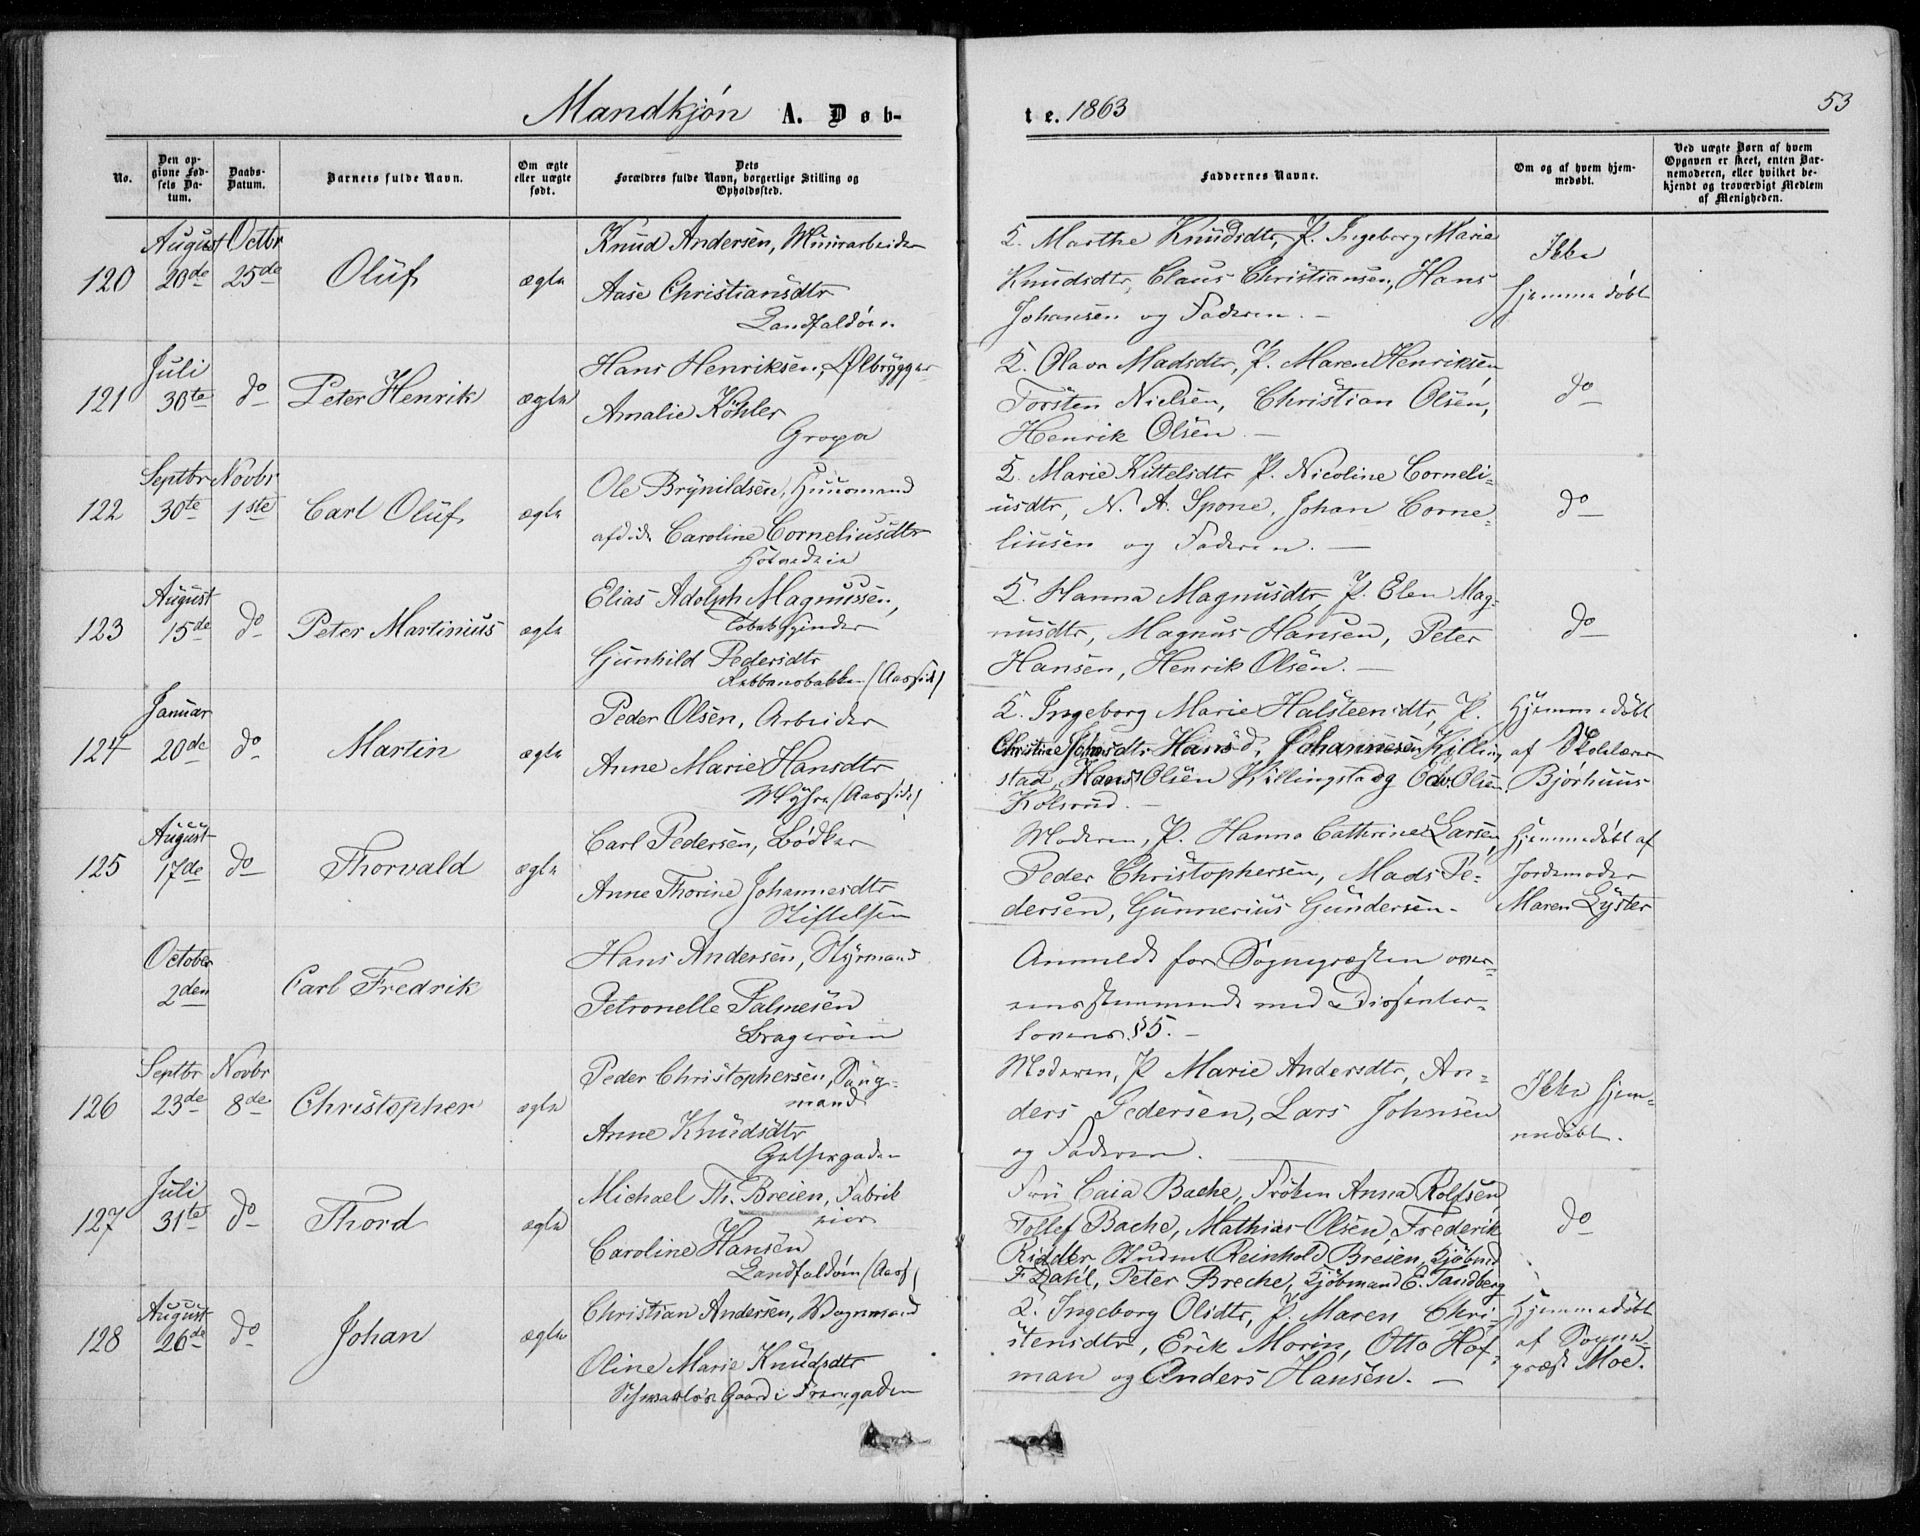 Mandkjøn A. Døb-
te. 1863
53
No.
Den op-
givne Fød-
sels Da-
tum.
Daabs-
Datum.
Barnets fulde Navn.
Om ægte
eller uægte
født.
Dets
Forældres fulde Navn, borgerlige Stilling og
Opholdssted.
Faddernes Navne.
Om og af hvem hjem-
medøbt.
Ved uægte Børn af hvem
Opgaven er skeet, enten Bar-
nemoderen, eller hvilket be-
kjendt og troværdigt Medlem
af Menigheden.
120
August
20de
Octbr
25de
Oluf
ægte
Knud Andersen, Muurarbeider
Aase Christiansdtr
Landfaldøen.
Marthe Knudsdtr, P. Ingeborg Marie
Knudsdtr, Claus Christiansen, Hans
Johansen og Faderen. —
Ikke
hjemmedøbt
121
Juli
30te
do
Peter Henrik
ægte
Hans Henriksen, Ølbrygger
Amalie Köhler
Gropa
Olava Madsdtr, P. Maren Henriksen,
Torsten Nielsen, Christian Olsen,
Henrik Olsen. —
do
122
Septbr
30te
Novbr
1ste
Carl Oluf
ægte
Ole Brynildsen, Huusmand
Caroline Corneliusdtr
Marie Kittelsdtr P. Nicoline Corneli-
usdtr, N. A. Spone, Johan Corne-
liusen og Faderen. —
do
123
August
15de
do
Peter Martinius
ægte
Elias Adolph Magnussen,
Tobakspinder
Gunhild Pedersdtr
(Aassid)
Hanna Magnusdtr, P. Elen Mag-
nusdtr, Magnus Hansen, Peter
Hansen, Henrik Olsen. —
do
124
Januar
20de
do
Martin
ægte
Peder Olsen, Arbeider
Anne Marie Hansdtr
Myhre (Aassid)
Ingeborg Marie Halsteensdtr, P.
Christine Johansdtr Johannesen Killing
stad, Hans Olsen Killingstad og Edv. Olsen
Kolsrud. —
Hjemmedøbt
af Skolelærer
Bjorhuus
125
August
17de
do
Thorvald
ægte
Carl Pedersen, Bødker
Anne Thorine Johannesdtr
Stiftelsen
Moderen, P. Hanna Cathrine Larsen,
Peder Christophersen, Mads Pe-
dersen, Gunnerius Gundersen.
Hjemmedøbt af
Jordemoder
Maren Lyster
October
2den
Carl Fredrik
Hans Andersen, Styrmand
Petronelle Palmesen
Bragerøen
Anmeldt for Sognepræsten over-
ensstemmende med Dissenter-
lovens §5. —
126
Septbr
23de
Novbr
8de
Christopher
ægte
Peder Christophersen, Saug-
mand
Anne Knudsdtr
Moderen, P. Marie Andersdtr, An-
ders Pedersen, Lars Johnsen
og Faderen.
Ikke hjem-
medøbt.
127
Juli
31te
do
Thord
ægte
Michael Th. Breien, Fabrik
eier
Caroline Hansen
Landfaldøen (Aass)
Fru Caia Bache, Frøken Anna Rolfsen,
Tollef Bache, Mathias Olsen, Frederik
Ridder, Student Reinhold Breien, Kjøbmd
F. Dahl, Peter Breche, Kjøbmand E. Tandberg
do
128
August
26de
do
Johan
ægte
Christian Andersen, Vognmand
Oline Marie Knudsdtr
Gaard i
Ingeborg Olsdtr, P. Maren Chri-
stensdtr, Erik Morin, Otto Hof-
man og Anders Hansen. —
Hjemmedøbt
af Sogne-
præst Moe.